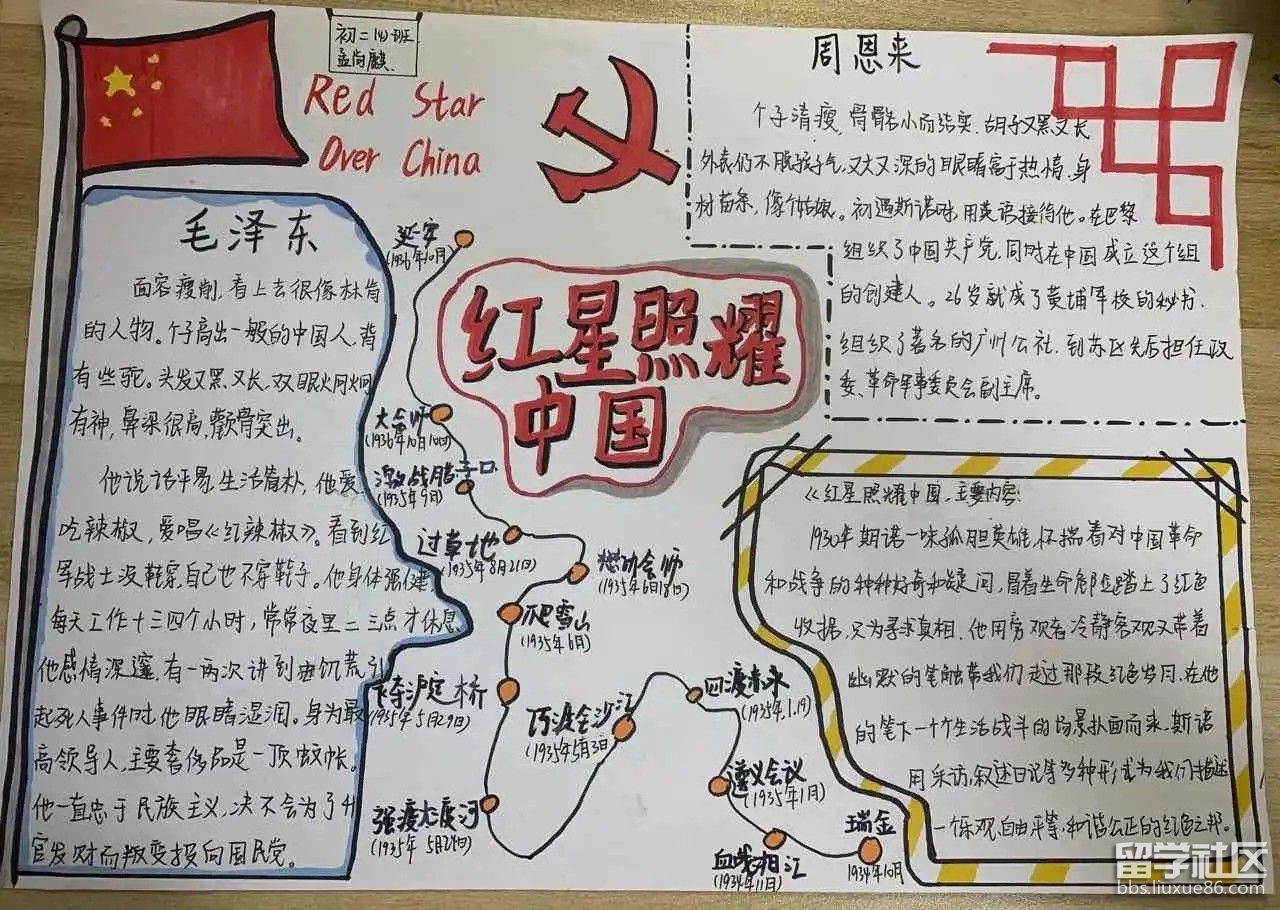 初二(4)班
孟尚麒
Red Star
Over China
毛泽东
面容瘦削,看上去很像林肯
的人物。个子高出一般的中国人,背
有些驼。头发又黑又长,双眼炯炯
有神,鼻梁很高,颧骨突出。
他说话平易,生活简朴,他爱
吃辣椒,爱唱《红辣椒》。看到红
军战士没鞋穿,自己也不穿鞋子。他身体强健
每天工作十三四个小时,常常夜里二三点才休息
他感情深邃,有一两次讲到
起死人事件时,他眼睛湿润。身为最
高领导人,主要奢侈品是一顶蚊帐。
他一直忠于民族主义,决不会为了升
官发财而叛变投向国民党。
红星照耀
中国
延安
(1936年10月)
大会师
(1936年10月10日)
激战腊子口
(1935年9月)
过草地
(1935年8月21日)
懋功会师
(1935年6月18日)
爬雪山
(1935年6月)
飞夺泸定桥
(1935年5月29日)
强渡大渡河
(1935年5月24日)
巧渡金沙江
(1935年5月3日
四渡赤水
(1935年.1.19)
遵义会议
(1935年1月)
血战湘江
(1934年11月)
瑞金
1934年10月
周恩来
个子清瘦,骨骼小而结实.胡子又黑又长
外表仍不脱孩子气,又大又深的眼睛富于热情.身
材苗条,像个姑娘。初遇斯诺时,用英语接待他。在巴黎
组织了中国共产党,同时在中国成立这个组
的创建人。26岁就成了黄埔军校的秘书.
组织了著名的广州公社.到苏区先后担任政
委、革命军事委员会副主席。
《红星照耀中国,主要内容:
1930年期诺一味孤胆英雄,怀揣着对中国革命
和战争的种种好奇和疑问,冒着生命危险踏上了红色
只为寻求真相.他用旁观者冷静客观又带着
幽默的笔触带我们走过那段红色岁月.在他
的笔下一个个生活战斗的场景扑面而来.斯诺
用采访,叙述日记等多种形式为我们描述
一个乐观,自由平等,和谐公正的红色之邦。
留学社区
bbs.liuxue86.com